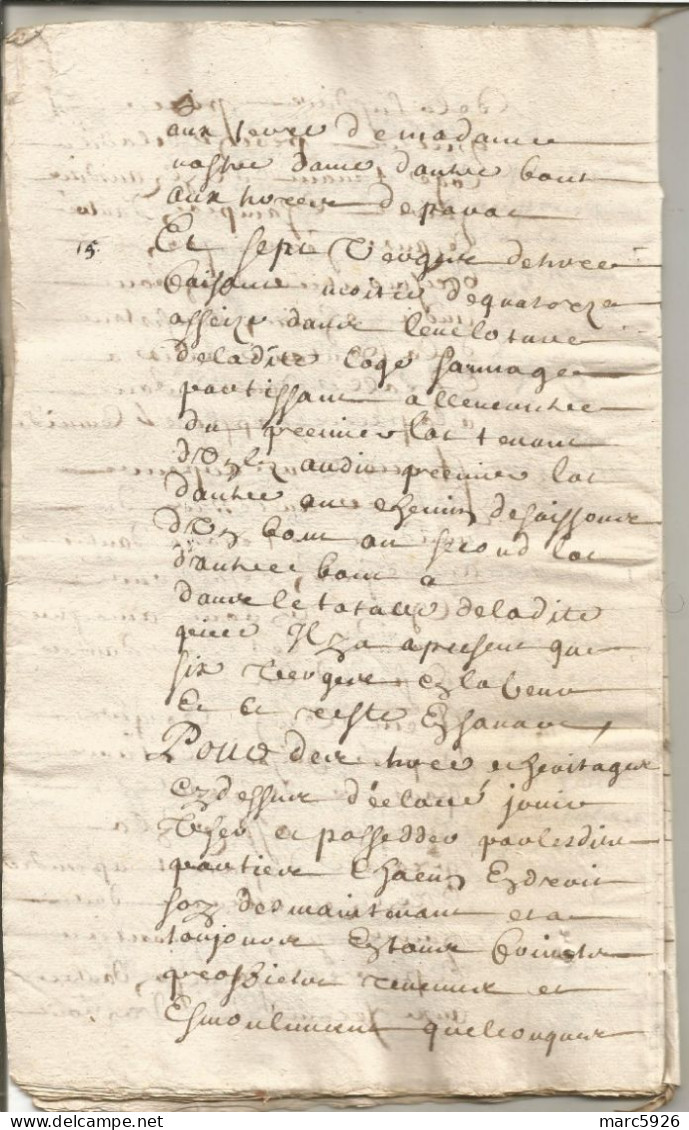 aux terre de madame
nostre dame dautre bout
aux hoirs de
15. Et sept verges de terre
faisant moitié de quatorze
assize dans lencloture
de ladite
partissant a lencontre
du premier lot tenant
d'un lez audit premier lot
dautre au chemin de soissons
d'un bout au second lot
d'autre bout a
dans le totalle de ladite
piece Il y a a present que
six verges en
et le reste en savart
Pour des terre et heritages
cy dessus déclaré jouir
user et possedder par lesdits
parties chacun endroit
soy des maintenant et a
toujours en tous fruits
proffictes revenus et
Esmoulument quelconques
marc5926